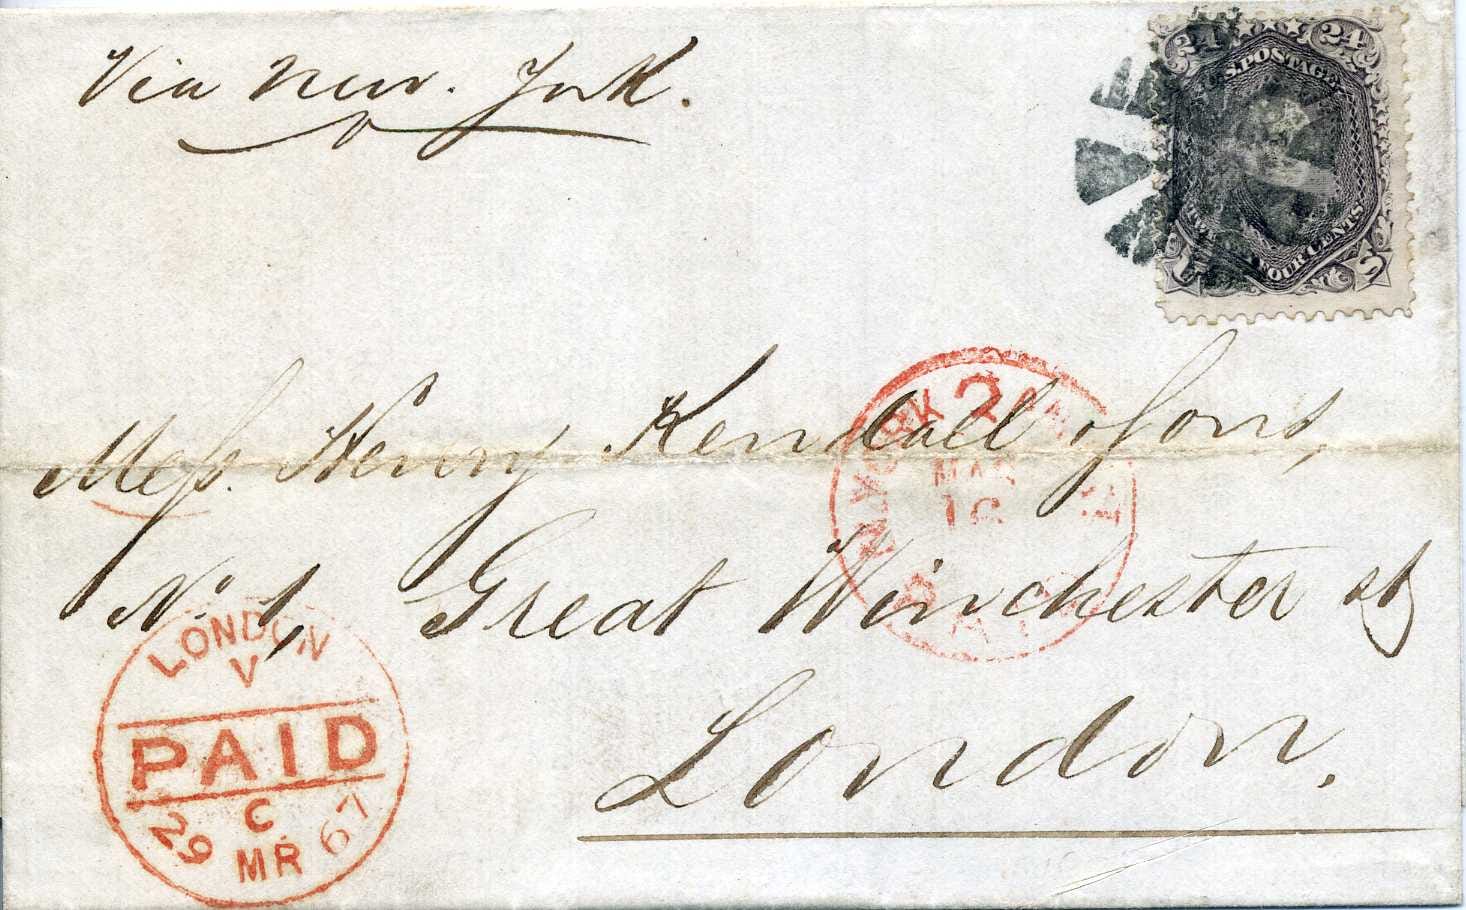 Via New. York.
24 24
U.S. POSTAGE
TWENTY FOUR CENTS
U S
Messs. Henry Kendall & Sons,
NEW YORK 2 PAID
MAR
No. 1, Great Winchester St
London.
LONDON
V
PAID
C
29 MR 67